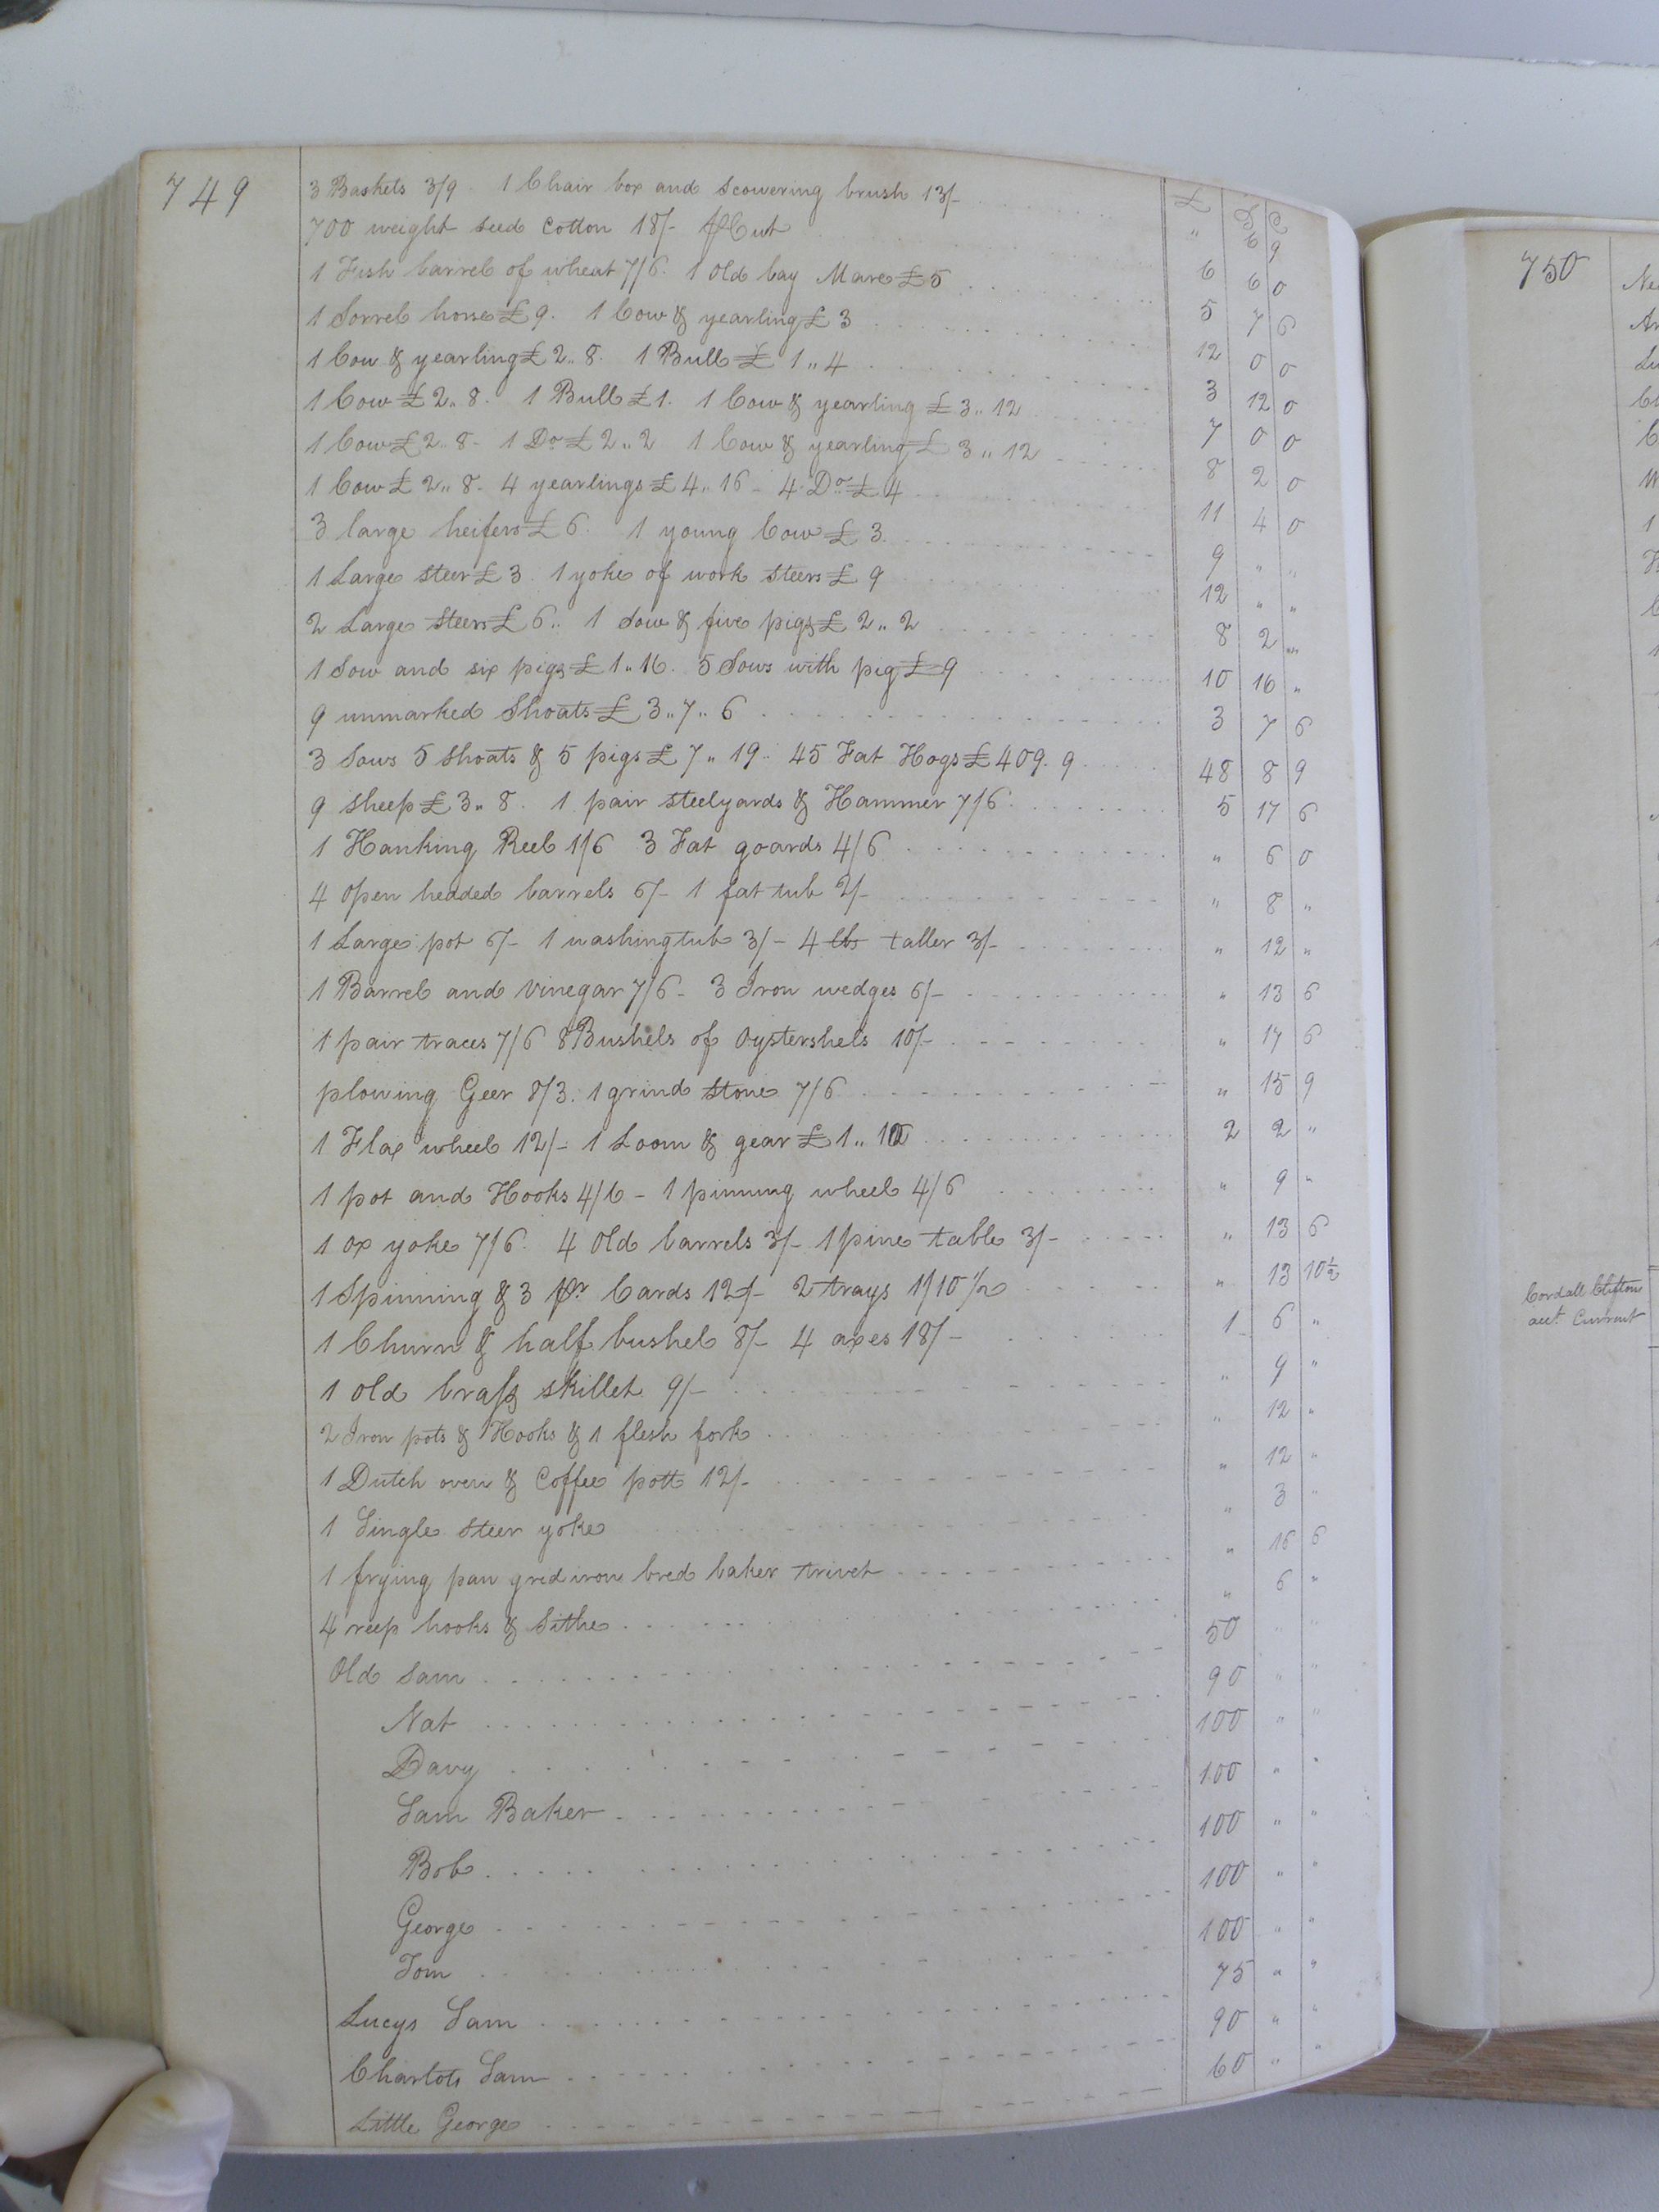 749
£ S D
3 Baskets 3/9. 1 Chair box and Scowering brush 13/- " 6 9
700 weight seed Cotton 18/- ⅌ Cwt 6 6 0
1 Fish barrel of wheat 7/6. 1 Old bay Mare £5 5 7 6
1 Sorrel horse £9. 1 Cow & yearling £3 12 0 0
1 Cow & yearling £2.. 8. 1 Bull £ 1 ,, 4 3 12 0
1 Cow £2.. 8. 1 Bull £1. 1 Cow & yearling £3.. 12 7 0 0
1 Cow £2.. 8- 1 Do £2,, 2 1 Cow & yearling £ 3 ,, 12 8 2 0
1 Cow £2,, 8- 4 yearlings £4.. 16 - 4 Do £4 11 4 0
3 large heifers £6. 1 young Cow £3. 9 " "
1 Large Steer £3. 1 yoke of work Steers £9 12 " "
2 Large Steers £6.. 1 Sow & five pigs £2,, 2 8 2 "
1 Sow and six pigs £1,, 16. 5 Sows with pig £9 10 16 "
9 unmarked Shoats £3,, 7,, 6 3 7 6
3 Sows 5 Shoats & 5 pigs £7,, 19.. 45 Fat Hogs £409. 9 48 8 9
9 Sheep £3,, 8. 1 pair Steelyards & Hammer 7/6. 5 17 6
1 Hanking Reel 1/6 3 Fat goards 4/6 " 6 0
4 Open hedded barrels 6/- 1 fat tub 2/- " 8 "
1 Large pot 6/- 1 washing tub 3/- 4 lbs taller 3/- " 12 "
1 Barrel and Vinegar 7/6 - 3 Iron wedges 6/- " 13 6
1 pair traces 7/6 8 Bushels of Oystershels 10/- " 17 6
plowing Geer 8/3. 1 grind Stone 7/6 " 15 9
1 Flax wheel 12/- 1 Loom & gear £1,, 10 2 2 "
1 pot and Hooks 4/6 - 1 pinning wheel 4/6 " 9 "
1 ox yoke 7/6. 4 Old barrels 3/- 1 pine table 3/- " 13 6
1 Spinning & 3 pr Cards 12/- 2 trays 1/10 1/2 " 13 10½
1 Churn & half bushel 8/- 4 axes 18/- 1 6 "
1 old brass skillet 9/- " 9 "
2 Iron pots & Hooks & 1 flesh fork " 12 "
1 Dutch oven & Coffee pott 12/- " 12 "
1 Single Steer yoke " 3 "
1 frying pan grediron bred baker trivet " 16 6
4 reep hooks & Sithe " 6 "
Old Sam 50 " "
Nat 90 " "
Davy 100 " "
Sam Baker 100 " "
Bob 100 " "
George 100 " "
Tom 100 " "
Lucys Sam 75 " "
Charlots Sam 90 " "
Little George 60 " "
750
Cordall Clifton
acct. Current